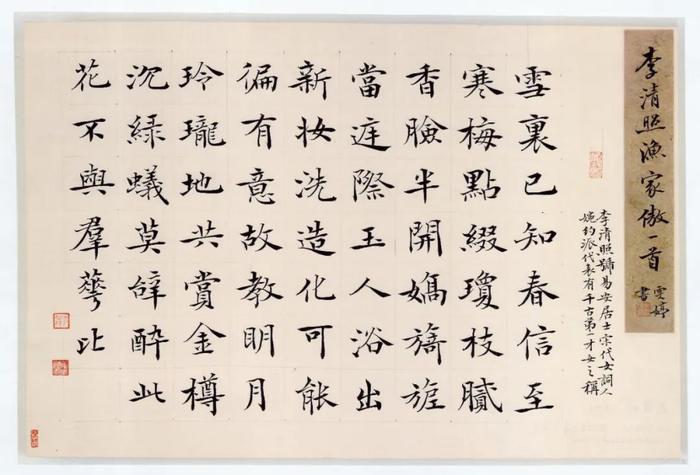 李清照漁家傲一首
婷書
李清照號易安居士宋代女詞人
婉約派代表有千古第一才女之稱
雪裏已知春信至
寒梅點綴瓊枝膩
香臉半開嬌旖旎
當庭際玉人浴出
新妝洗造化可能
偏有意故教明月
玲瓏地共賞金樽
沉綠蟻莫辭醉此
花不與羣華比